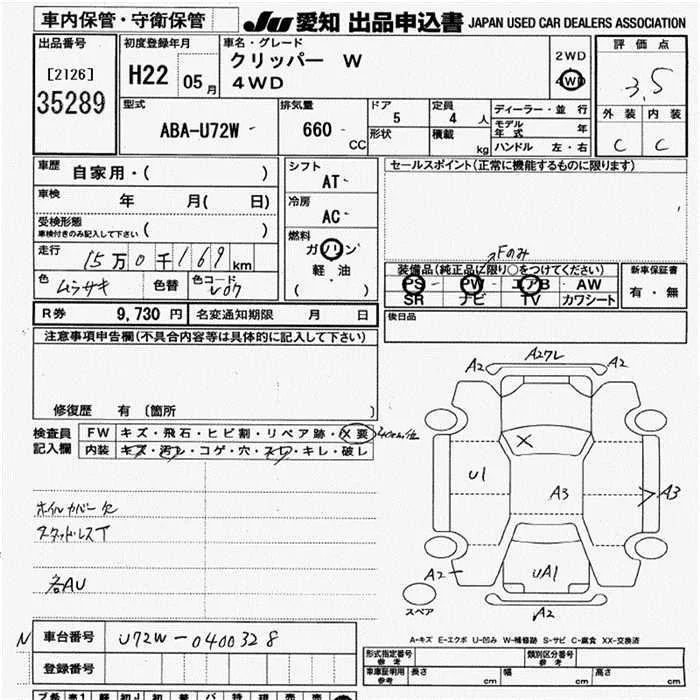 車内保管・守衛保管
JU 愛知 出品申込書 JAPAN USED CAR DEALERS ASSOCIATION
出品番号
[2126]
35289
初度登録年月
H22 05月
車名・グレード
クリッパー W
4WD
2WD
4WD
評価点
3.5
外装 内装
C C
型式
ABA-U72W
排気量
660 CC
ドア
5
形状
定員
4 人
積載 kg
ディーラー・並行
モデル年式 年
ハンドル 左・右
車歴
自家用・( )
車検
年 月( 日)
受検形態
車検付きのみ記入して下さい ( )
走行
15万0千169km
色
ムラサキ
色替
色コード
V07
シフト
AT
冷房
AC
燃料
ガソリン
軽・油
( )
セールスポイント(正常に機能するものに限ります)
Fのみ
装備品(純正品に限り○をつけてください)
PS PW エアB AW
SR ナビ TV カワシート
新車保証書
有・無
後日品
R券 9,730円
名変通知期限 月 日
注意事項申告欄(不具合内容等は具体的に記入して下さい)
修復歴 有 〔箇所 〕
検査員記入欄
FW キズ・飛石・ヒビ割・リペア跡・X要 40cm位
内装 キズ・汚レ・コゲ・穴・スレ・キレ・破レ
ホイルカバー欠
スタッドレスT
各AU
A2 A27L A2
X
U1
A3
A3
A2
UA1
A2
スペア
A-キズ E-エクボ U-凹み W-補修跡 S-サビ C-腐食 XX-交換済
N
車台番号 U72W-0400328
登録番号
形式指定番号 参考
類別区分番号 参考
車庫証明用 参考
長さ cm 幅 cm 高さ cm